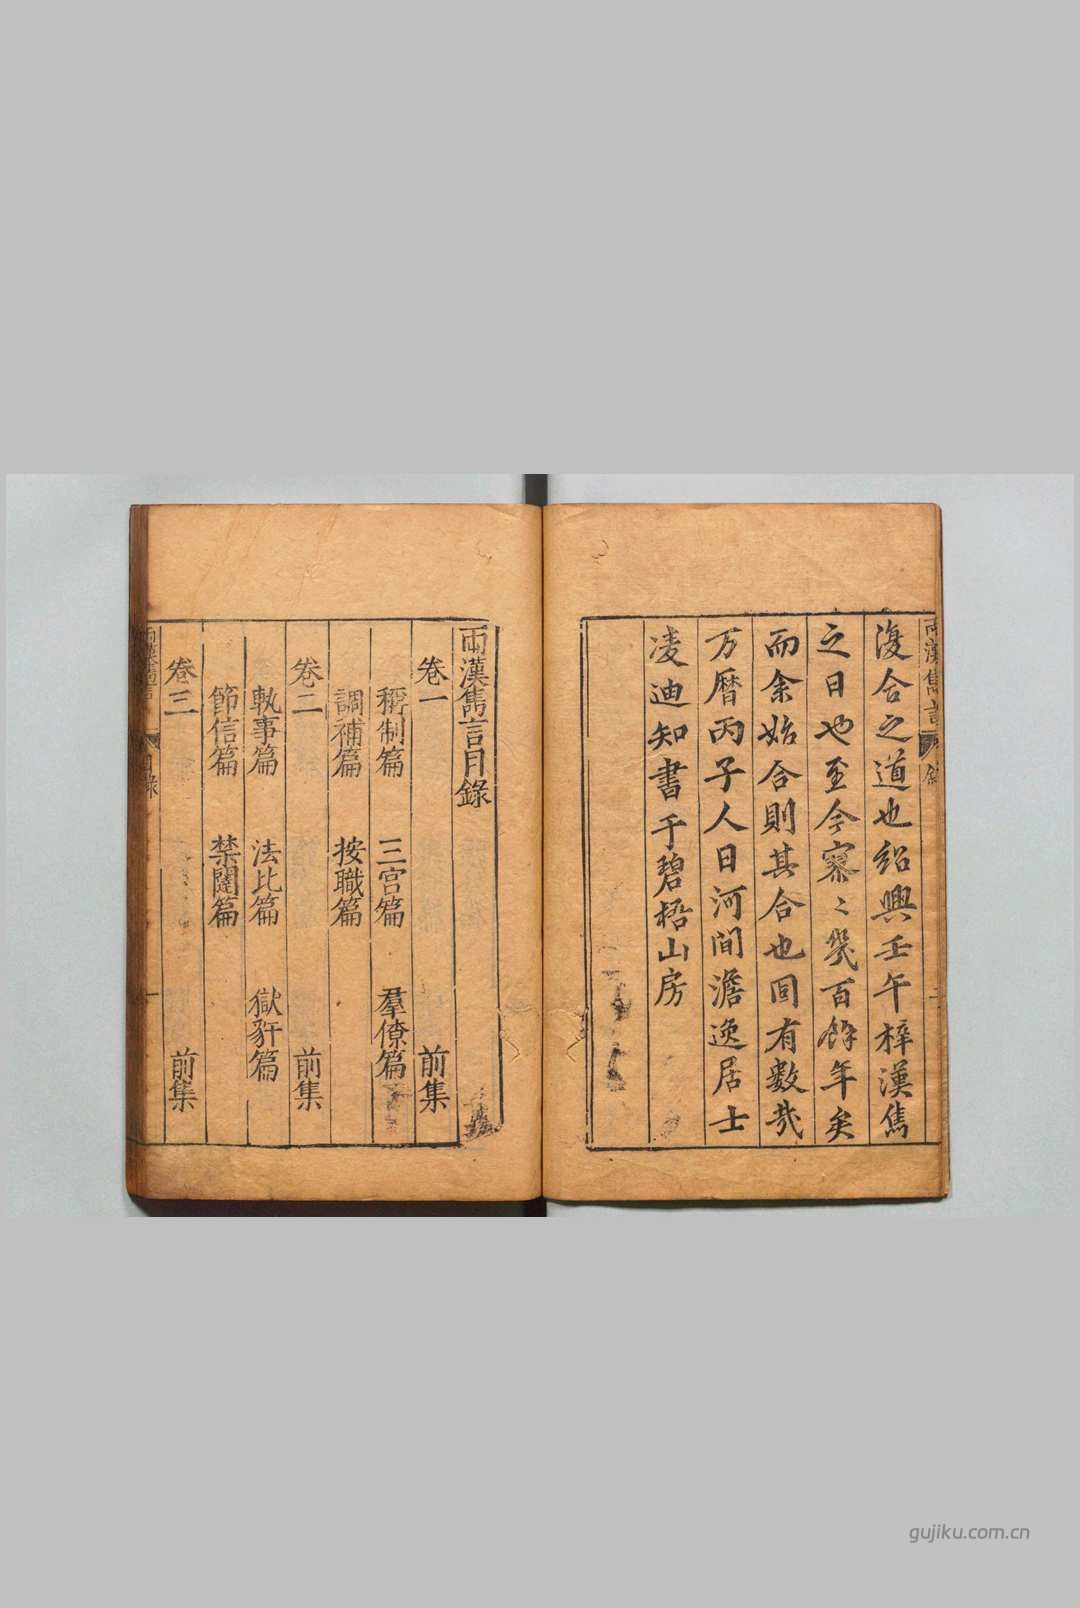 復合之道也紹興壬午梓漢雋
之日也至今寥〻幾百餘年矣
而余始合則其合也固有數哉
万曆丙子人日河間澹逸居士
凌迪知書于碧梧山房
兩漢雋言目錄
卷一 前集
稱制篇 三宮篇 羣僚篇
調補篇 按職篇
卷二 前集
執事篇 法比篇 獄犴篇
節信篇 禁闥篇
卷三 前集
gujiku.com.cn